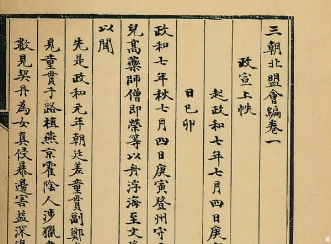 三朝北盟會編卷一
政宣上帙
起政和七年七月四日庚
日己卯
政和七年秋七月四日庚寅登州守
兒高藥師僧即榮等以舟浮海至文
以聞
先是政和元年朝廷差童貫副鄭
見童貫于路植燕京霍陰人涉獵書
數見契丹為女真侵暴邊害益深